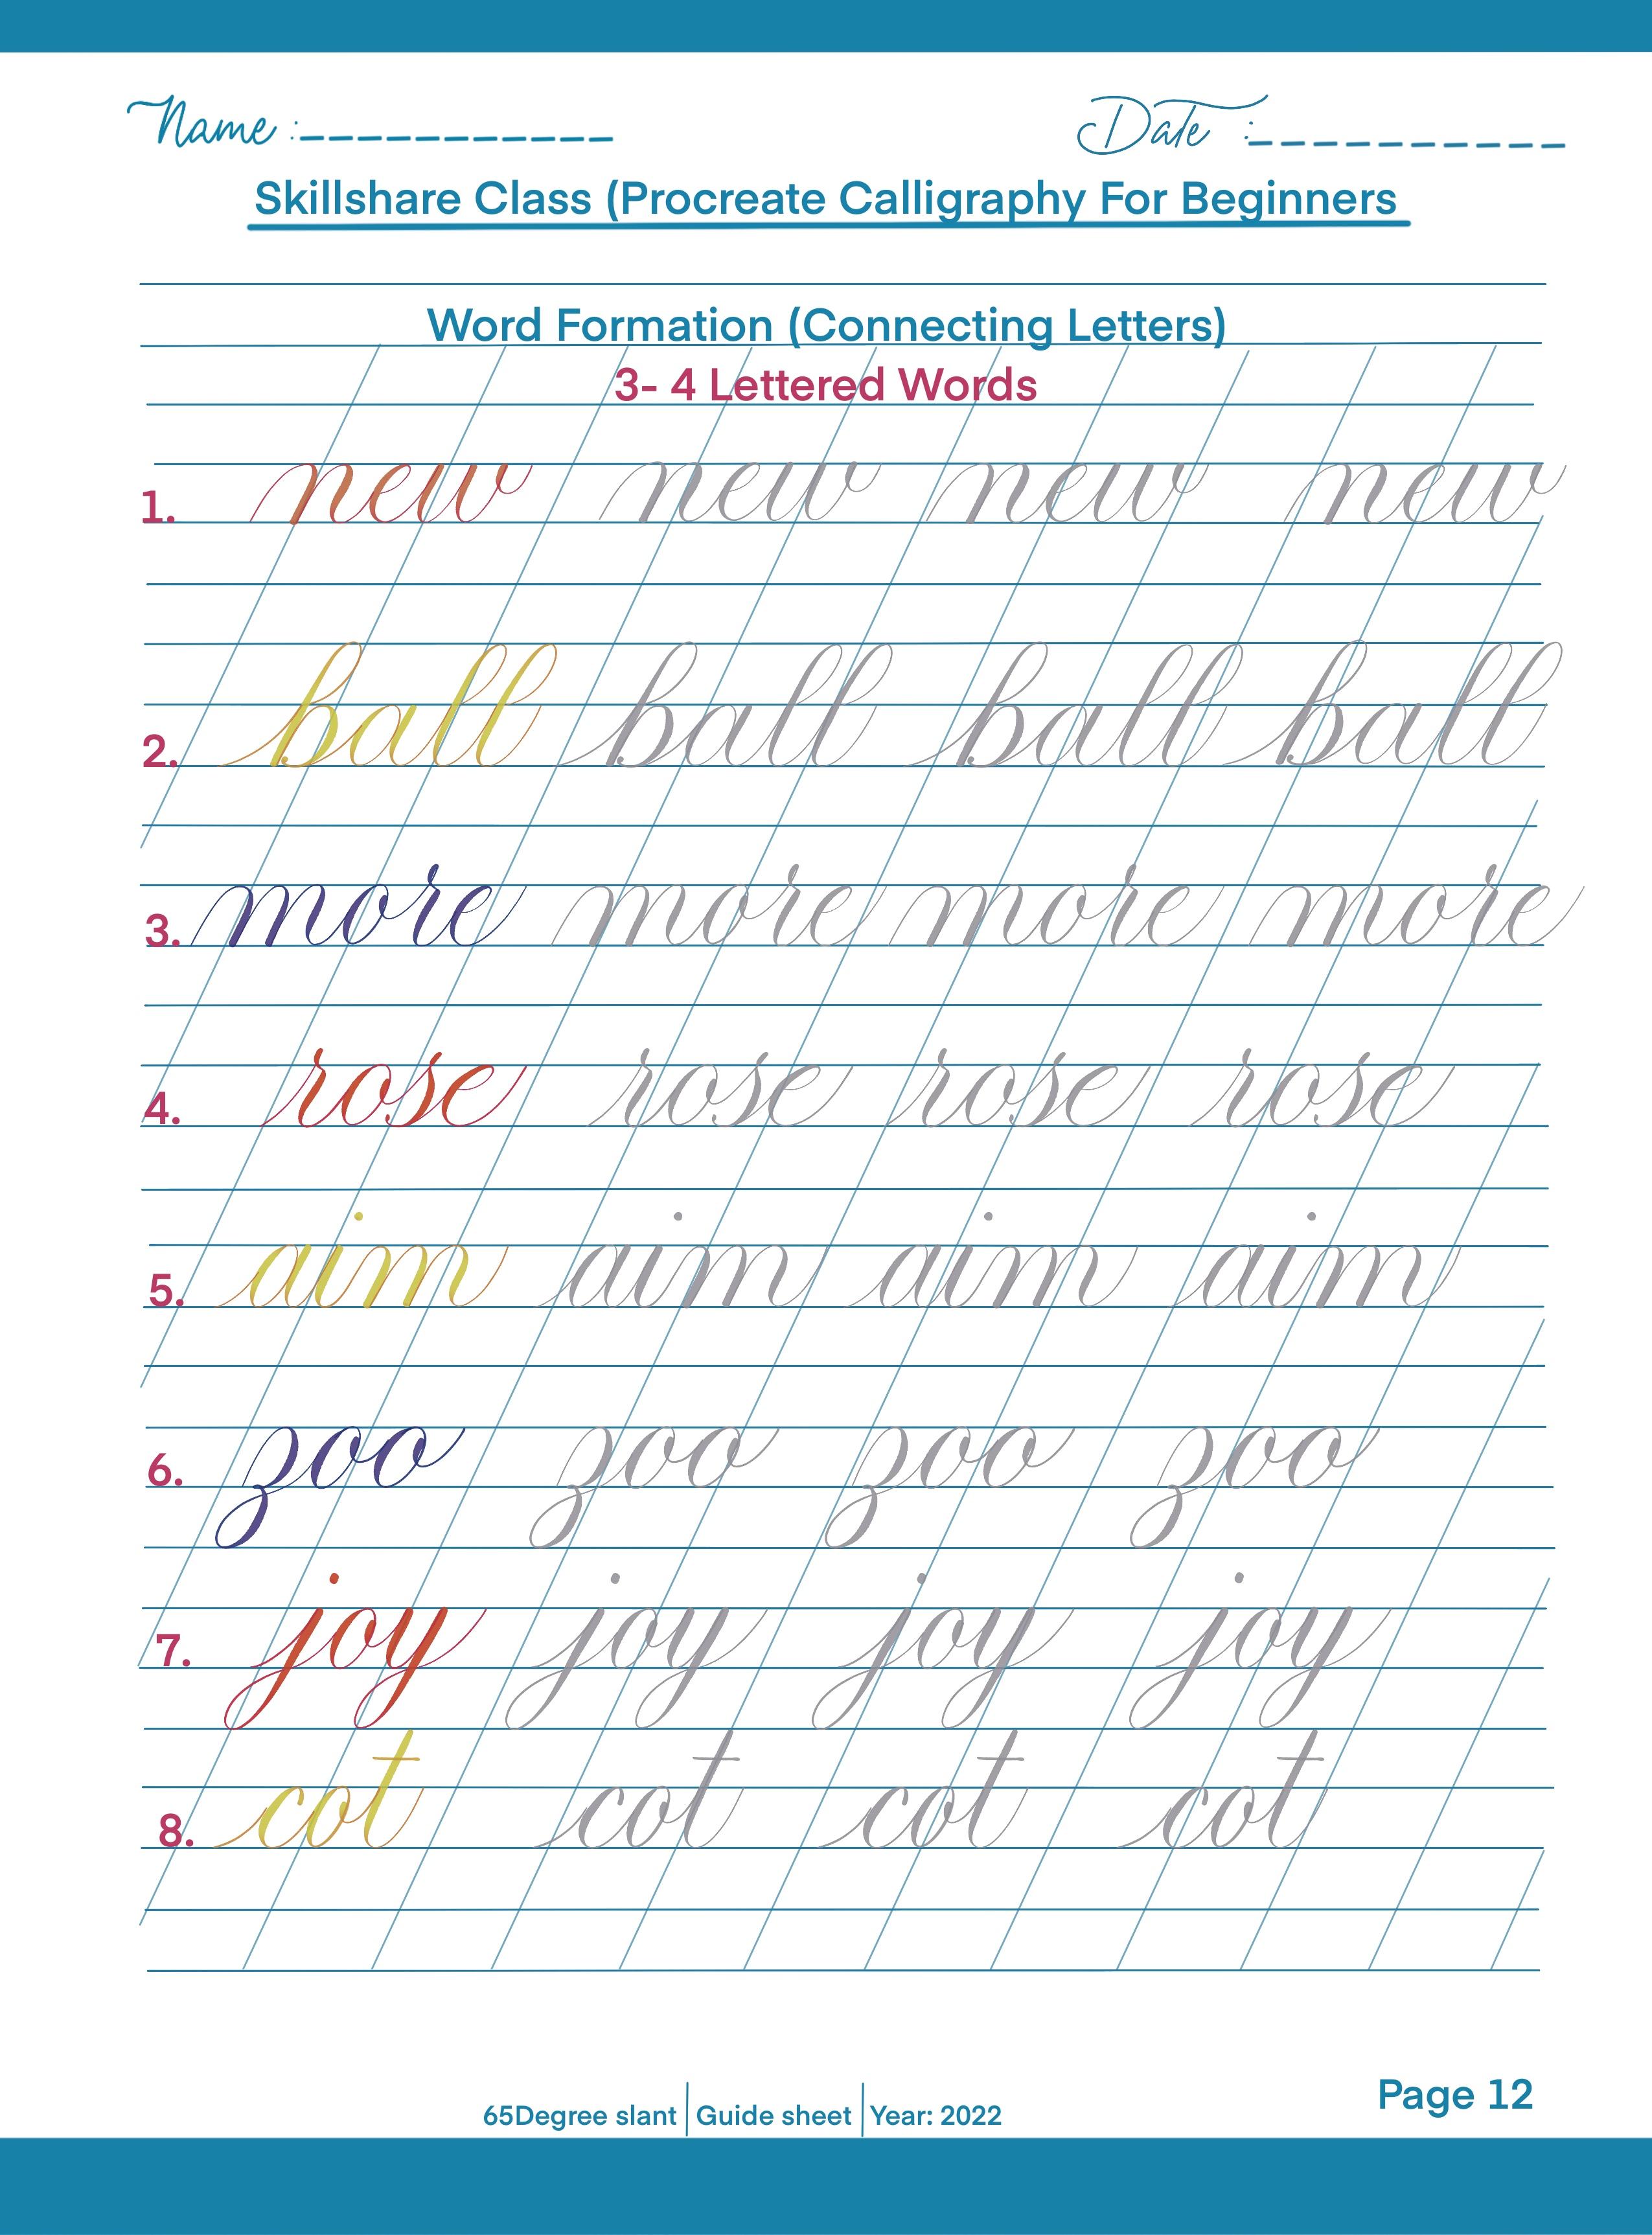 Name : Date :
Skillshare Class (Procreate Calligraphy For Beginners
Word Formation (Connecting Letters)
3- 4 Lettered Words
1. new new new new
2. ball ball ball ball
3. more more more more
4. rose rose rose rose
5. aim aim aim aim
6. zoo zoo zoo zoo
7. joy joy joy joy
8. cot cot cot cot
Page 12
65Degree slant | Guide sheet | Year: 2022